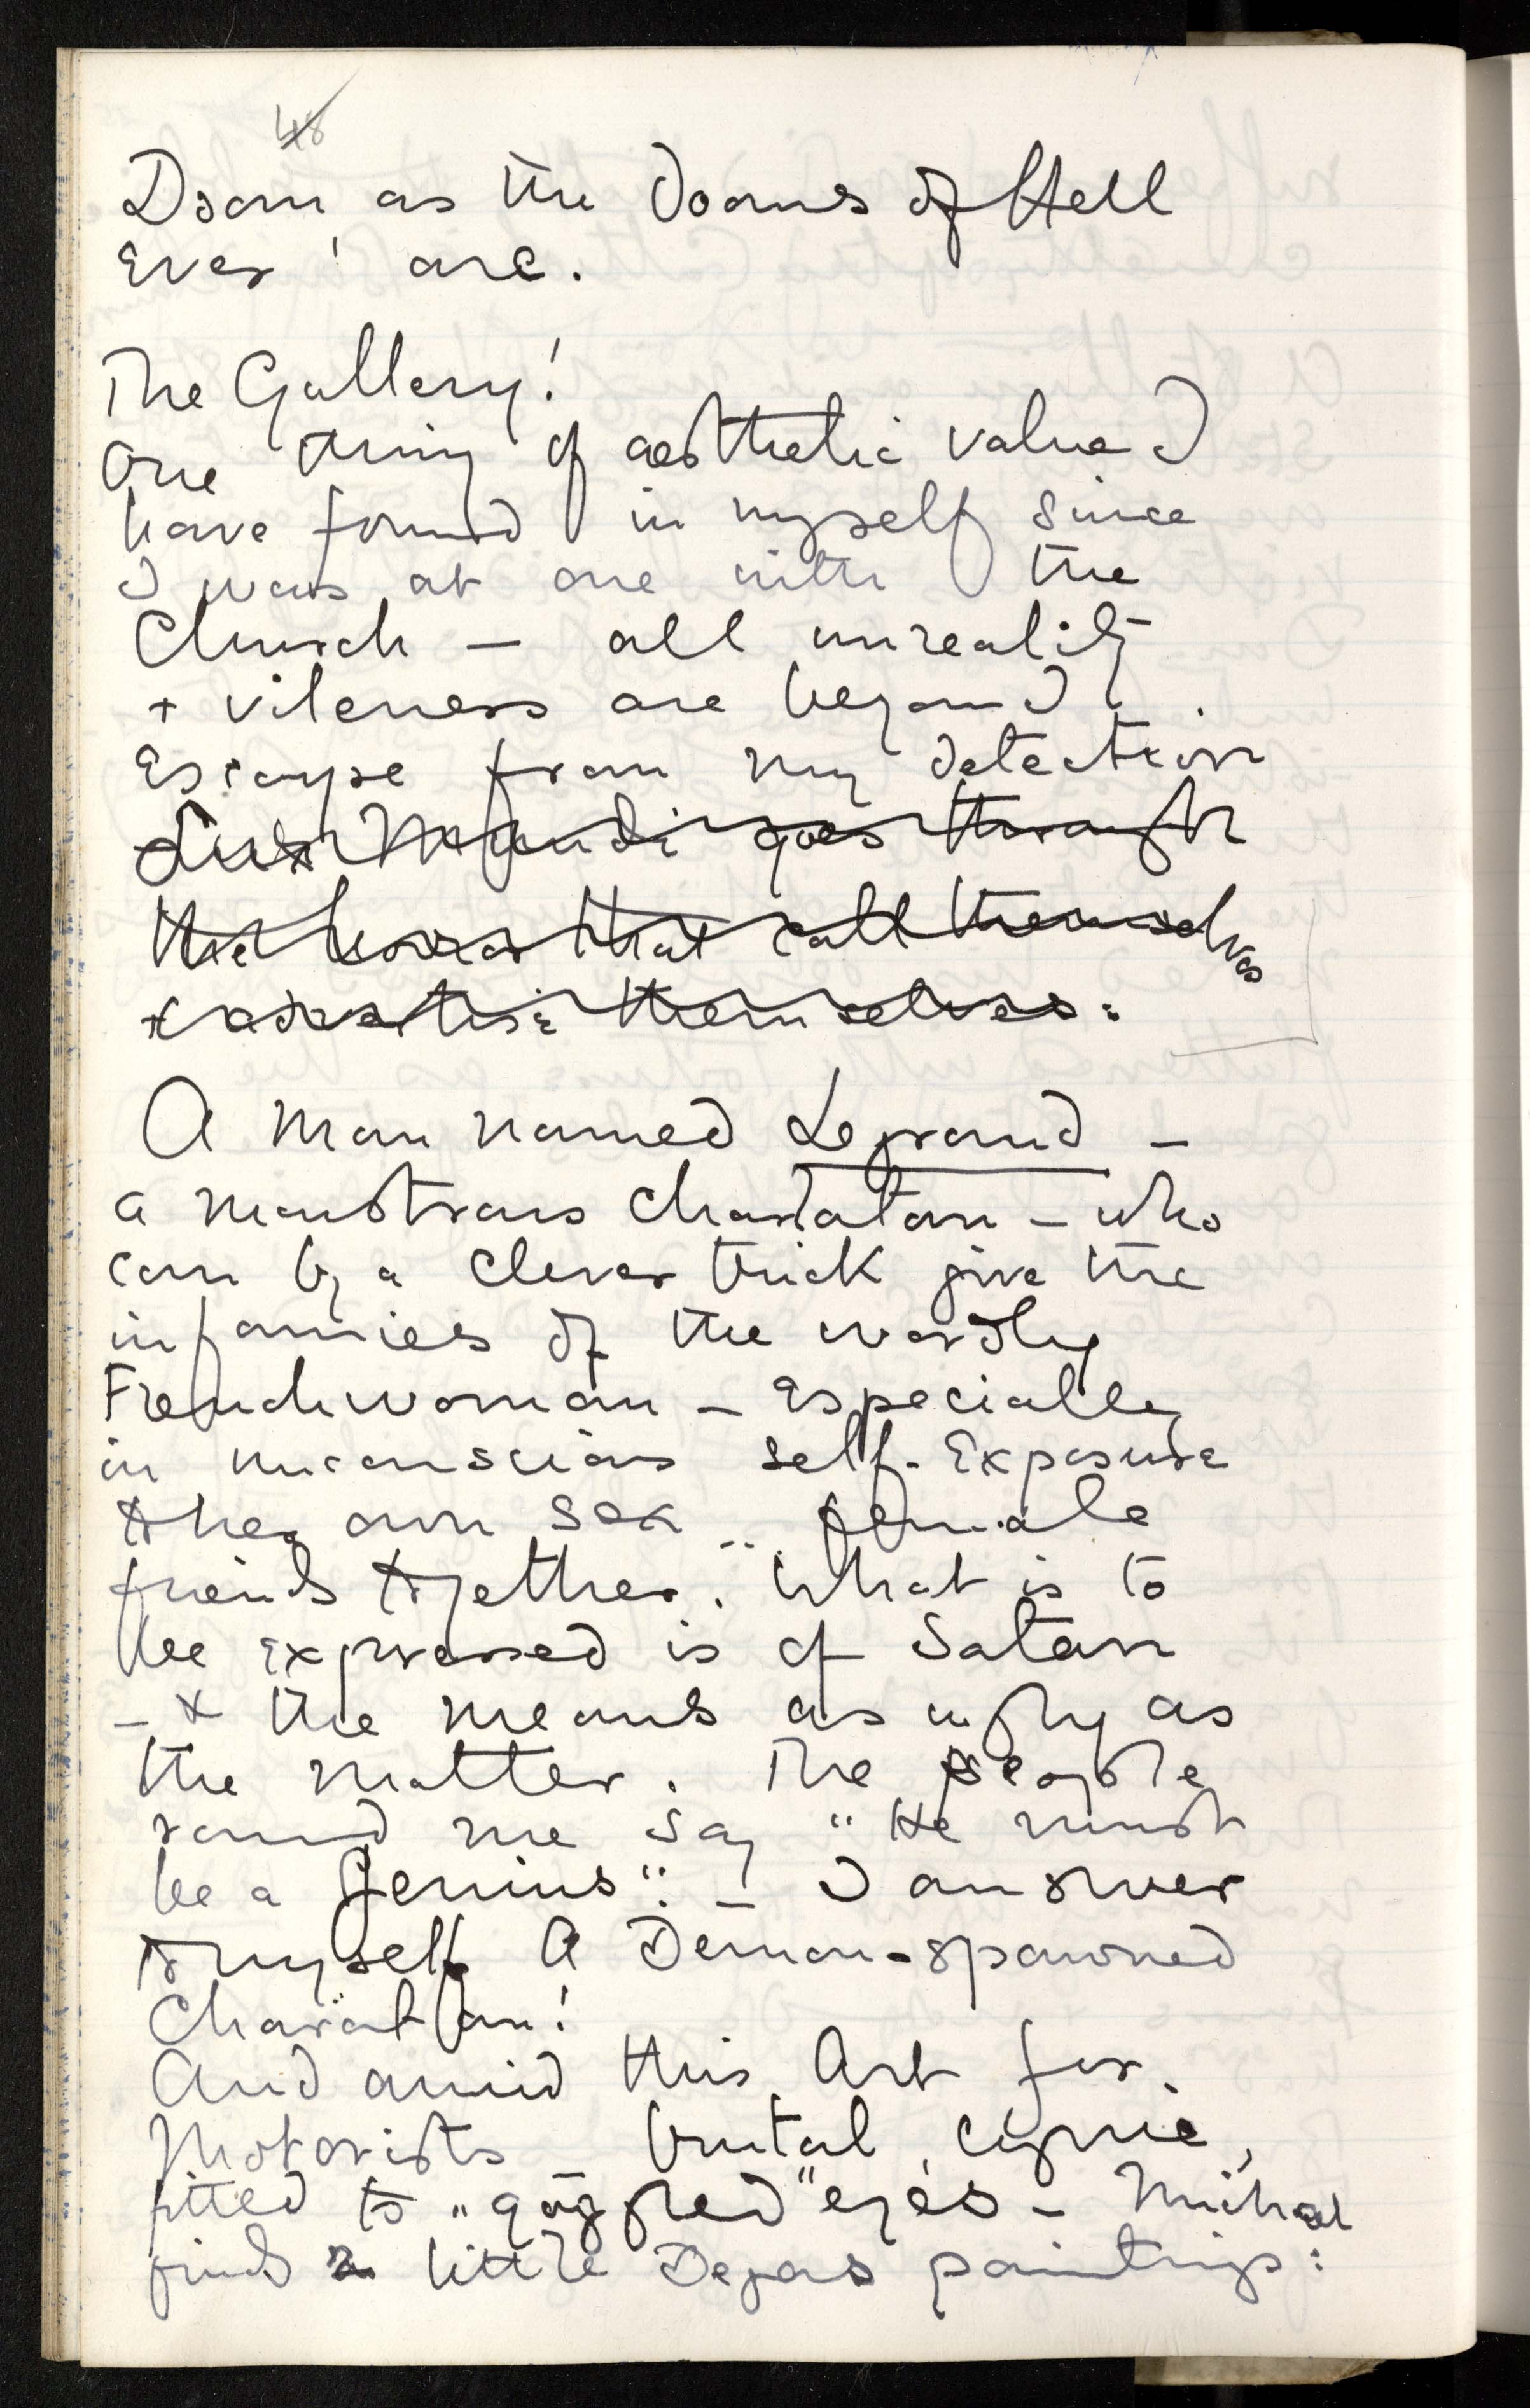 48
Doom as the Dooms of Hell
Ever are.
The Gallery!
One thing of aesthetic value I
have found in myself since
I was at one with the
Church — all unreality
+ vileness are beyond
Escape from my detection
Lux Mundi goes through
the that call themselves
themselves:
A man named Legrand —
a monstrous charlatan — who
can by a clever trick give the
infamies of the wordly
Frenchwoman — Especially
in unconscious self-Exposure
to her own sex .. female
friends together. What is to
be Expressed is of Satan
— & the means as ugly as
the matter. The people
round me say "He must
be a Genius". — I answer
to myself A Demon-spawned
Charatlan!
And amid this Art for
Motorists brutal, cynic,
fitted to "goggled" eyes — Michael
finds 2 little Degas paintings: